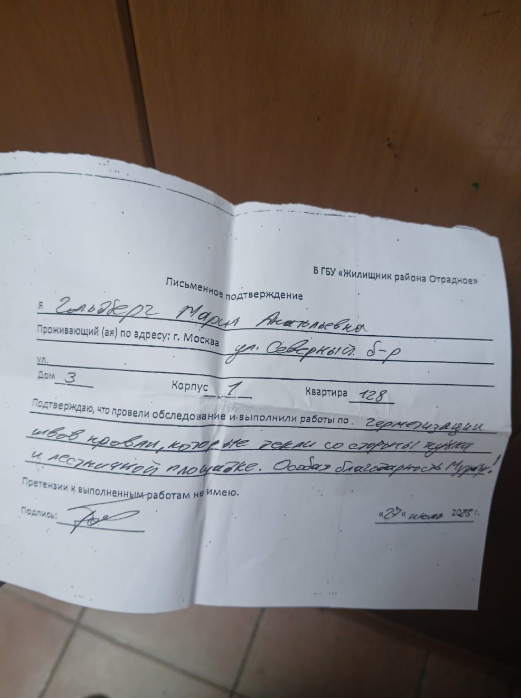 В ГБУ «Жилищник района Отрадное»
Письменное подтверждение
Я Гольдберг Мария Анатольевна
Проживающий (ая) по адресу: г. Москва ул. Северный б-р
ул.
Дом 3 Корпус 1 Квартира 128
Подтверждаю, что провели обследование и выполнили работы по герметизации
швов кровли, которые текли со стороны кухни
и лестничной площадке. Особая благодарность
Претензии к выполненным работам не имею.
Подпись:
«27» июня г.